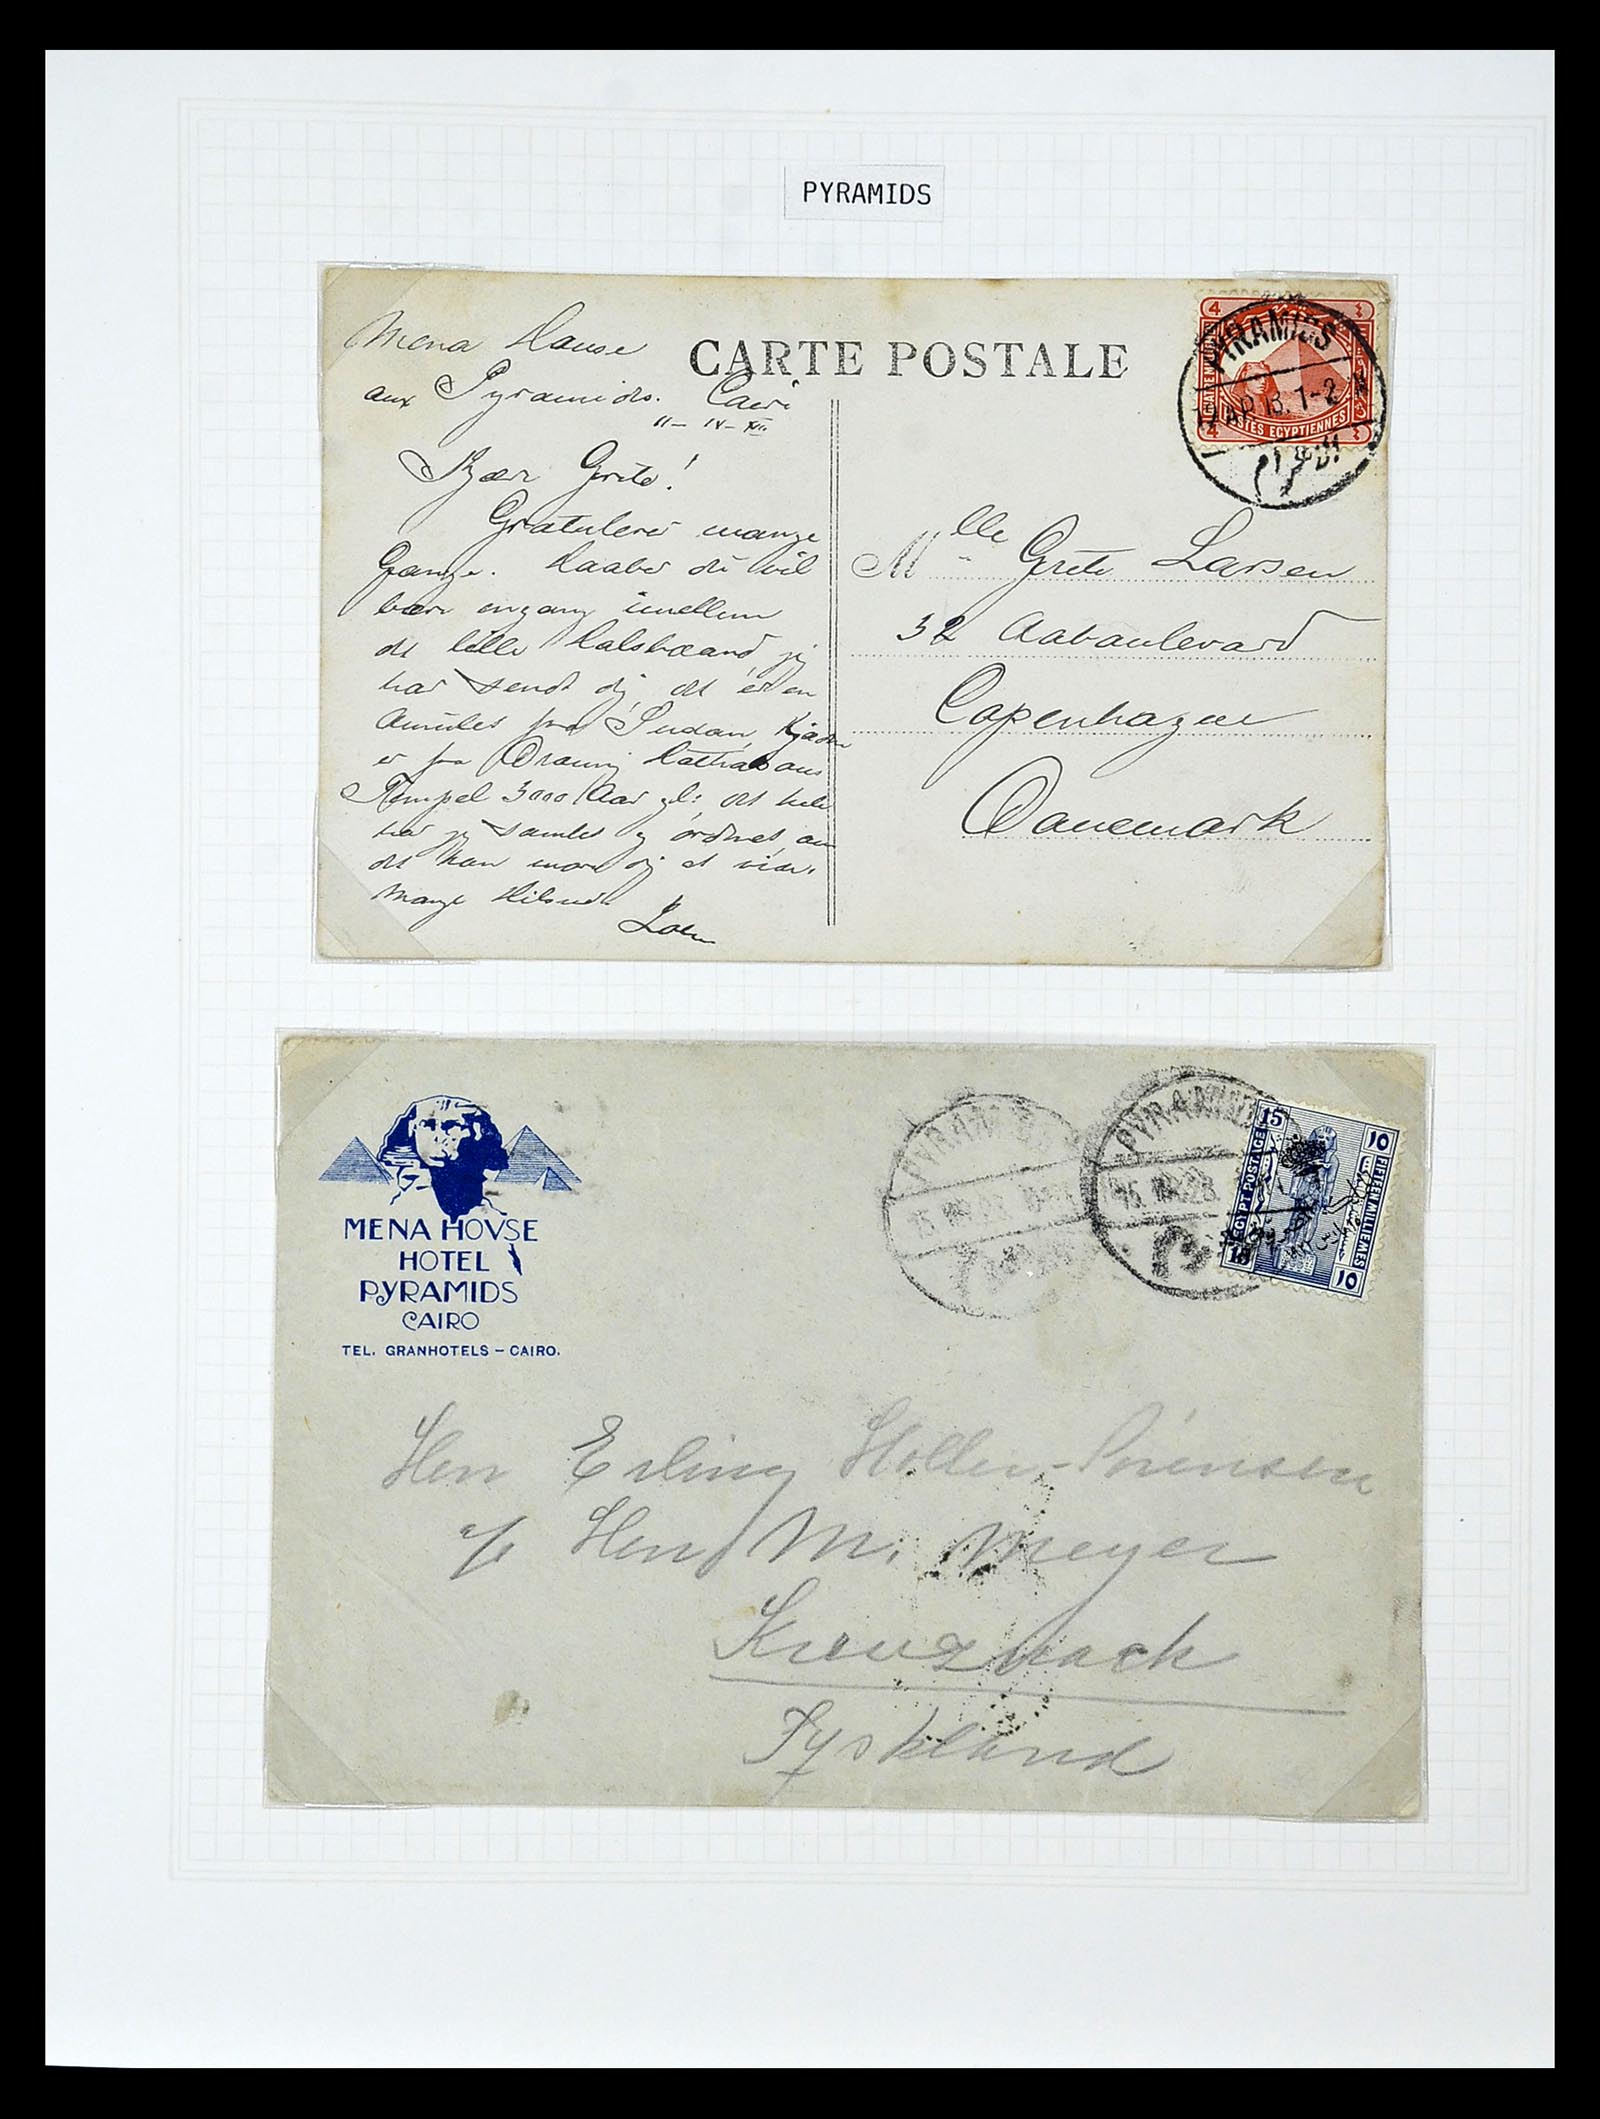 PYRAMIDS
CARTE POSTALE
Mena House
aux Pyramids. Cairo
11 – IV – XIII
Kjære Grete!
Gratulerer mange
Gange. Haaber du vil
bære engang imellem
det lille Halsbaand jeg
har sendt dig, det er en
Amulet fra Sudan, Kjæden
er fra Dronning
Tempel 3000 Aar gl: det hele
har jeg samlet og ordnet,
det kan more dig at vide.
Mange Hilsner
Mlle Grete Larsen
32 Aaboulevard
Copenhague
Danemark
4
PYRAMIDS
12 AP 13. 1-2
POSTES EGYPTIENNES
4
MENA HOVSE
HOTEL
PYRAMIDS
CAIRO
TEL. GRANHOTELS – CAIRO.
PYRAMIDS
15 MR 23
PYRAMIDS
15 MR 23
15
EGYPT POSTAGE
15
١٥
FIFTEEN MILLIEMES
١٥
Herr Erling Holler-Sørensen
c/o Herr M. Meyer
Kreuznach
Tyskland